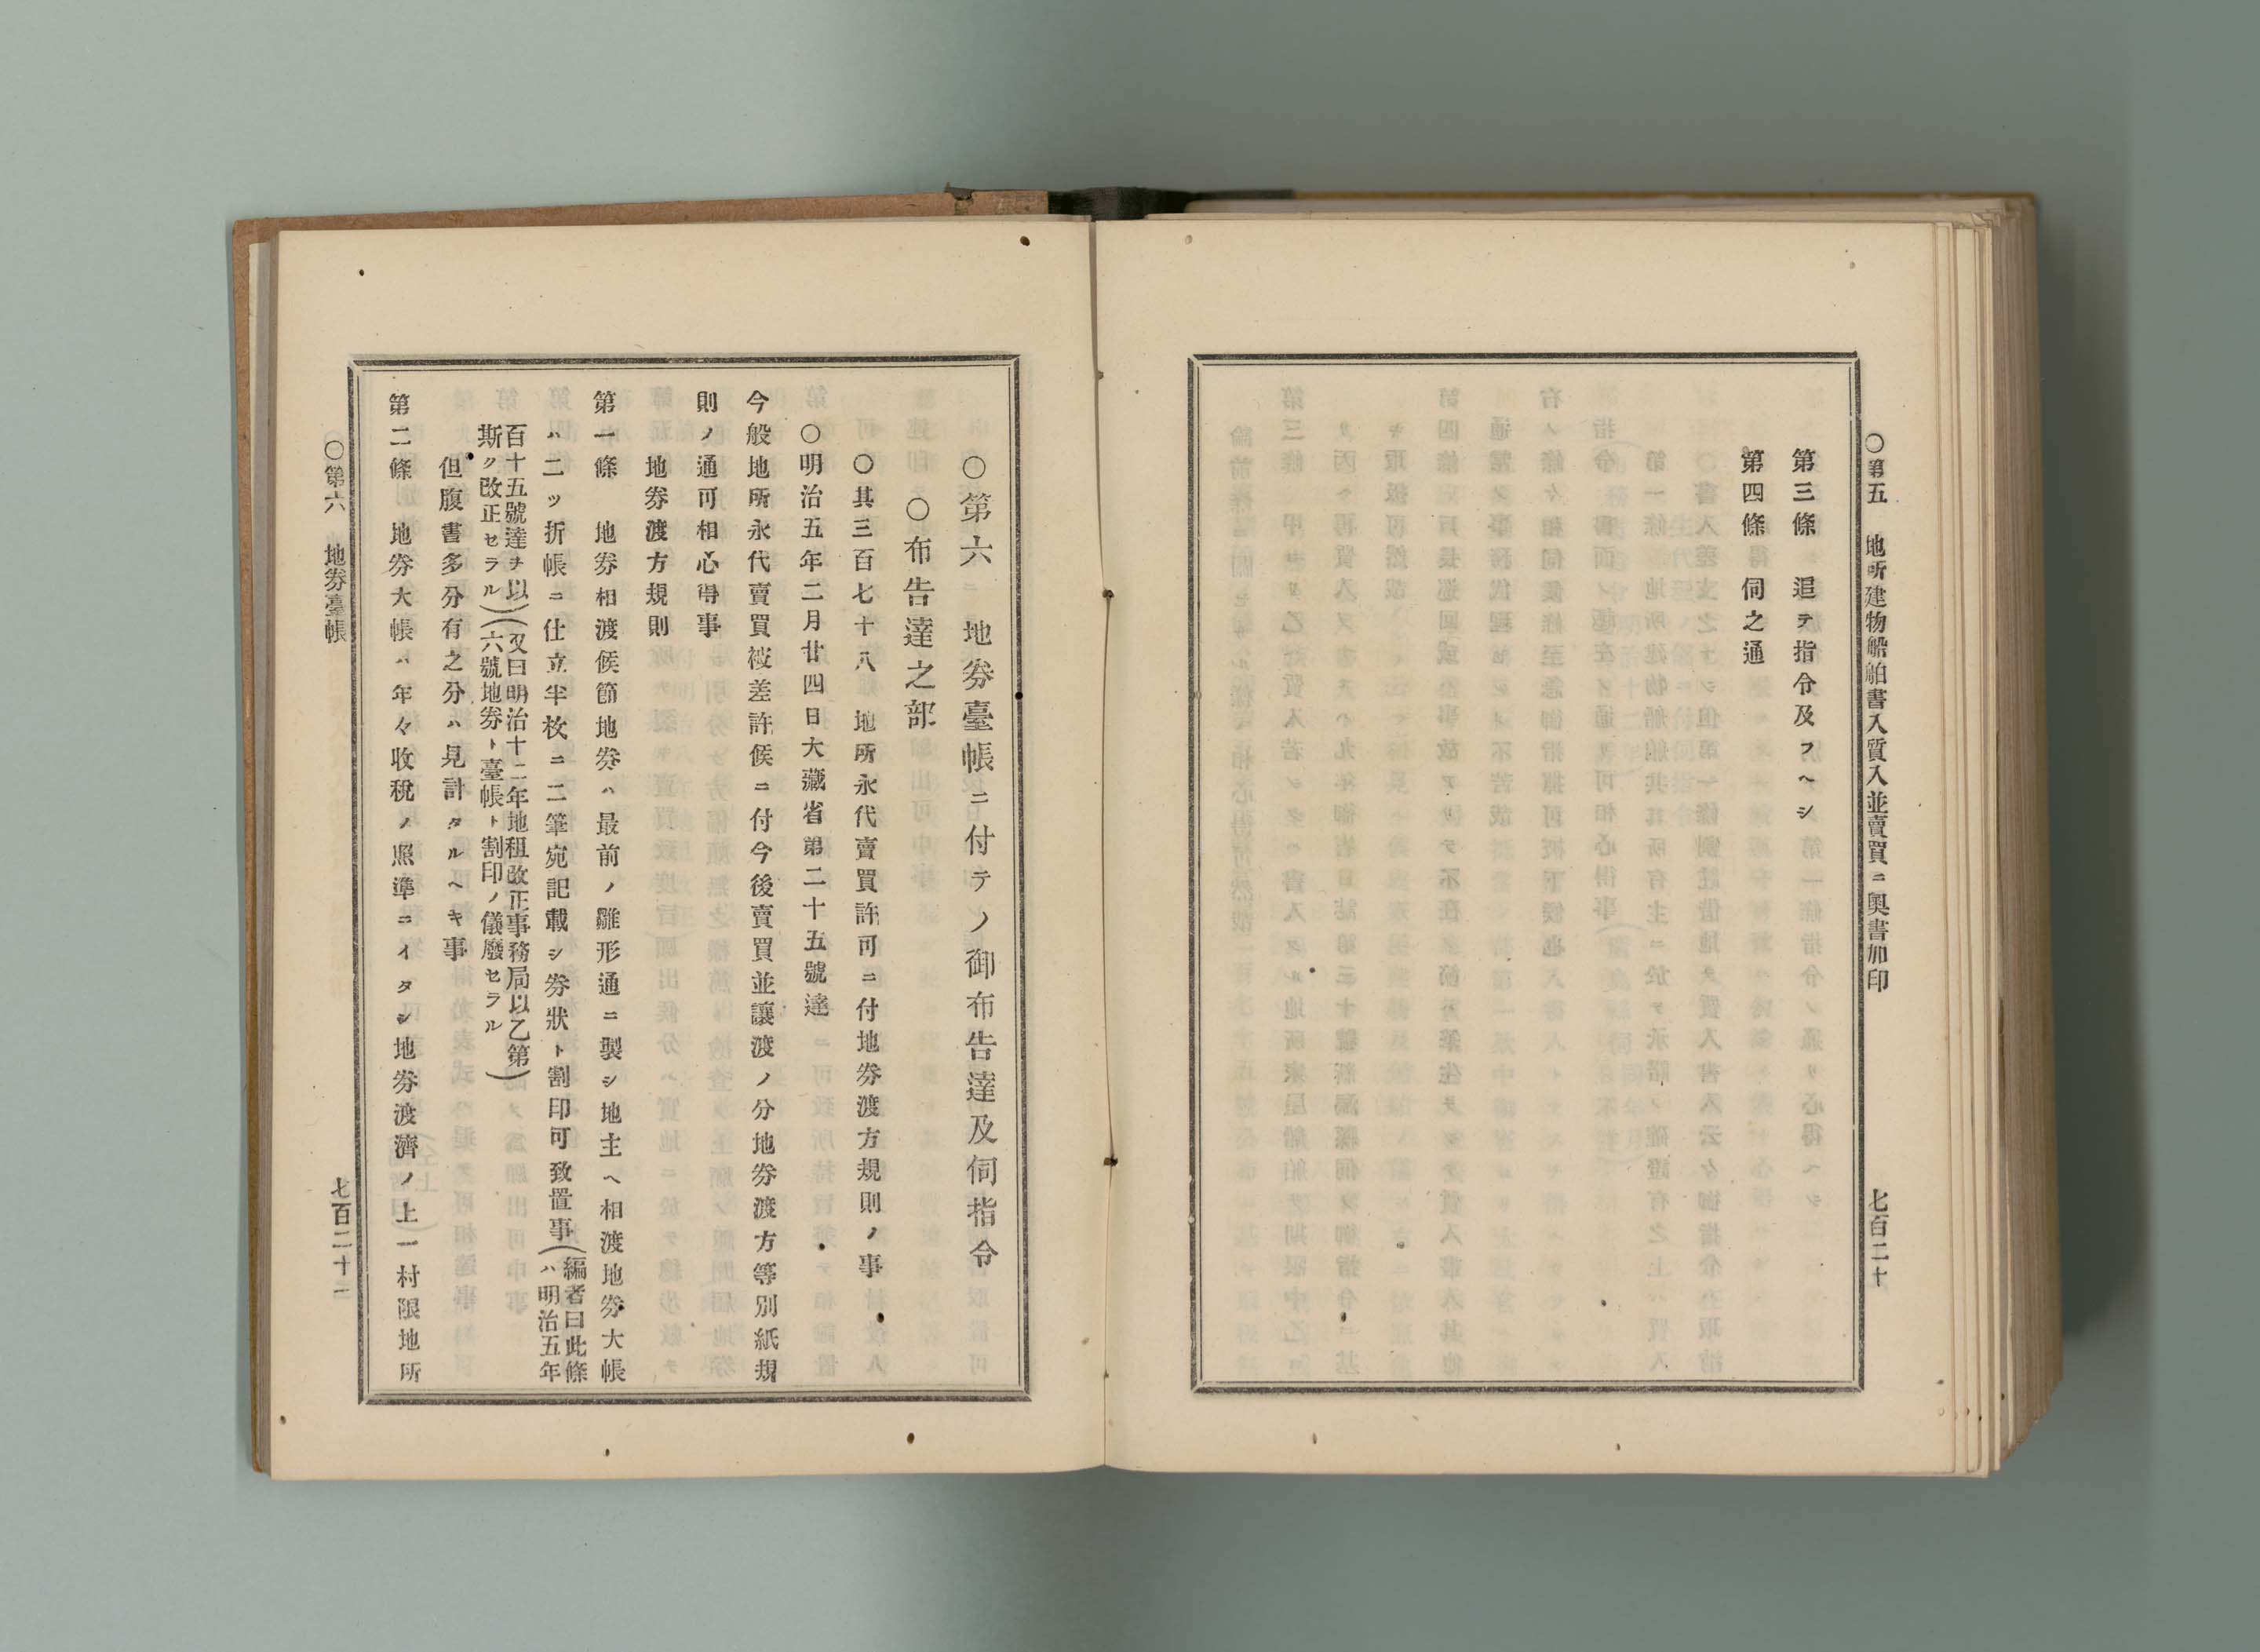 ○第五　地所建物船舶書入質入並賣買ニ奧書加印
七百二十
第三條　追テ指令及フヘシ
第四條　伺之通
○第六　地券臺帳ニ付テノ御布告達及伺指令
○布告達之部
○其三百七十八　地所永代賣買許可ニ付地券渡方規則ノ事
○明治五年二月廿四日大藏省第二十五號達
今般地所永代賣買被差許候ニ付今後賣買並讓渡ノ分地券渡方等別紙規
則ノ通可相心得事
地券渡方規則
第一條　地券相渡候節地券ハ最前ノ雛形通ニ製シ地主ヘ相渡地券大帳
ハ二ッ折帳ニ仕立半枚ニ二筆宛記載シ券狀ト割印可致置事（編者曰此條
ハ明治五年
百十五號達ヲ以）（又曰明治十二年地租改正事務局以乙第）
斯ク改正セラル）（六號地券ト臺帳ト割印ノ儀廢セラル
但腹書多分有之分ハ見計タルヘキ事
第二條　地券大帳ハ年々收稅ノ照準ニイタシ地券渡濟ノ上一村限地所
○第六　地券臺帳
七百二十一